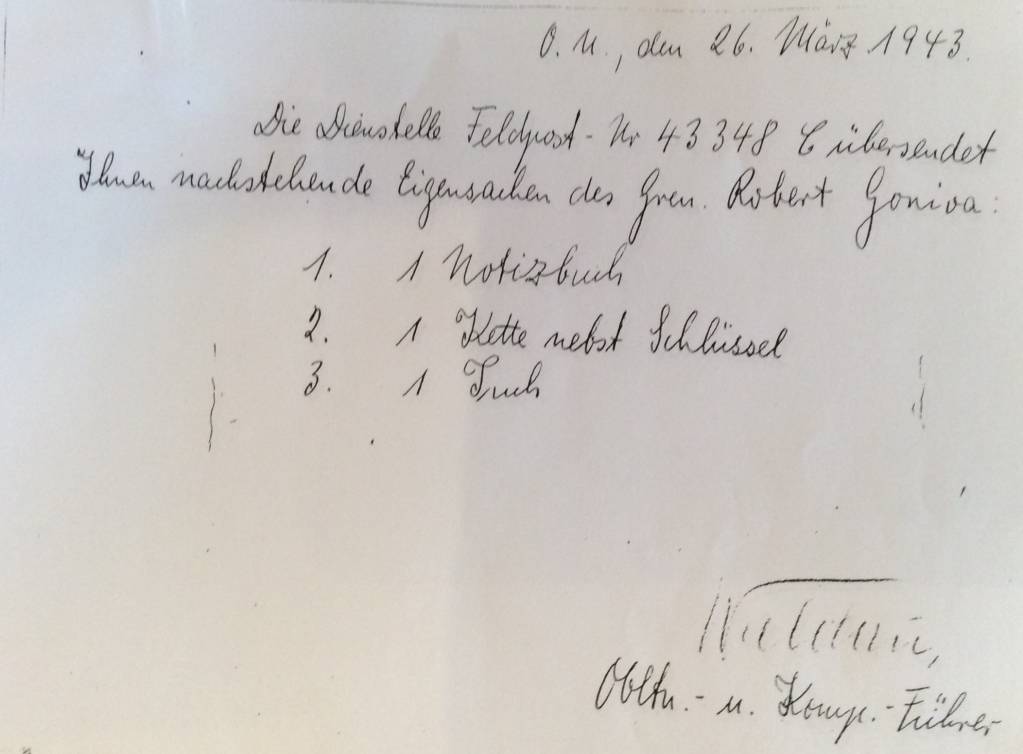 O. U., den 26. März 1943.
Die Dienstelle Feldpost-Nr 43348 C übersendet
Ihnen nachstehende Eigensachen des Gren. Robert Goniva:
1. 1 Notizbuch
2. 1 Kette nebst Schlüssel
3. 1 Tuch
Obltn.- u. Komp.-Führer